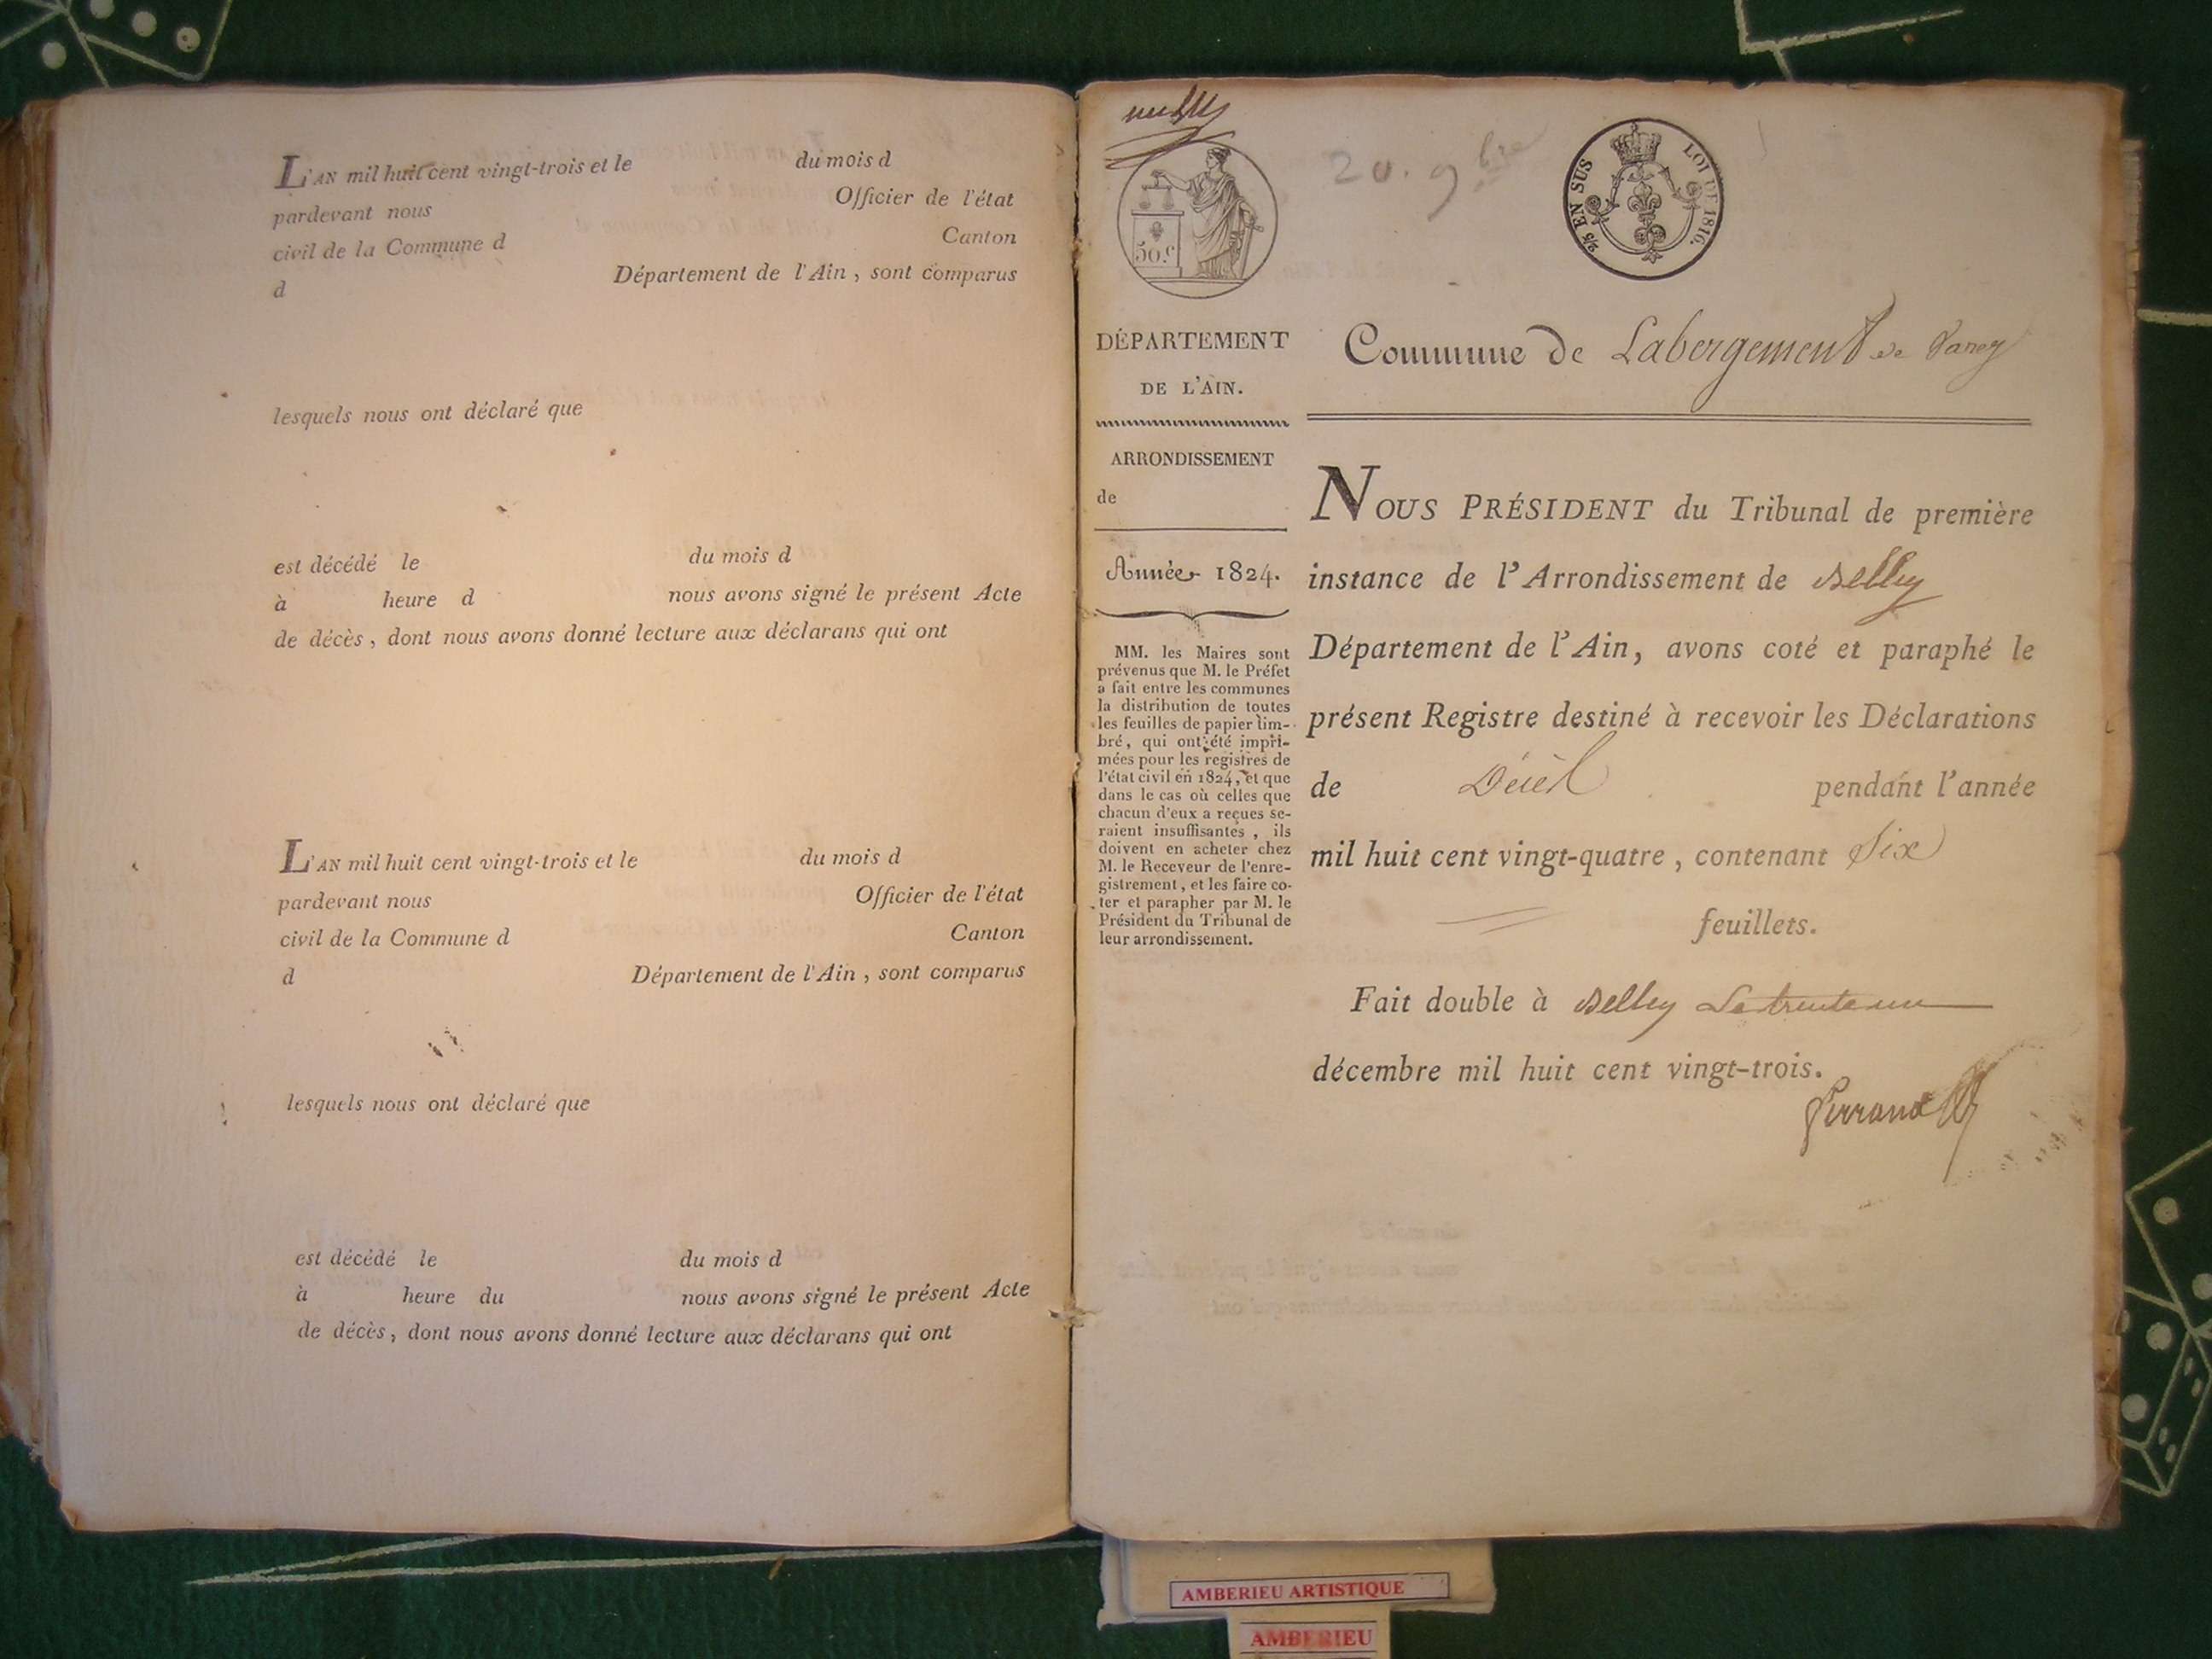 L'AN mil huit cent vingt-trois et le du mois d
pardevant nous Officier de l'état
civil de la Commune d Canton
d Département de l'Ain, sont comparus
lesquels nous ont déclaré que
est décédé le du mois d
à heure d nous avons signé le présent Acte
de décès, dont nous avons donné lecture aux déclarans qui ont
L'AN mil huit cent vingt-trois et le du mois d
pardevant nous Officier de l'état
civil de la Commune d Canton
d Département de l'Ain, sont comparus
lesquels nous ont déclaré que
est décédé le du mois d
à heure du nous avons signé le présent Acte
de décès, dont nous avons donné lecture aux déclarans qui ont
50.c
20. 9bre
2/5 EN SUS
LOI DE 1816.
DÉPARTEMENT
DE L'AIN.
ARRONDISSEMENT
de
Année 1824.
MM. les Maires sont
prévenus que M. le Préfet
a fait entre les communes
la distribution de toutes
les feuilles de papier tim-
bré, qui ont été impri-
mées pour les registres de
l'état civil en 1824, et que
dans le cas où celles que
chacun d'eux a reçues se-
raient insuffisantes, ils
doivent en acheter chez
M. le Receveur de l'enre-
gistrement, et les faire co-
ter et parapher par M. le
Président du Tribunal de
leur arrondissement.
Commune de Labergement de Varey
NOUS PRÉSIDENT du Tribunal de première
instance de l'Arrondissement de Belley
Département de l'Ain, avons coté et paraphé le
présent Registre destiné à recevoir les Déclarations
de Décès pendant l'année
mil huit cent vingt-quatre, contenant Six
feuillets.
Fait double à Belley Le trente un
décembre mil huit cent vingt-trois.
AMBERIEU ARTISTIQUE
AMBERIEU